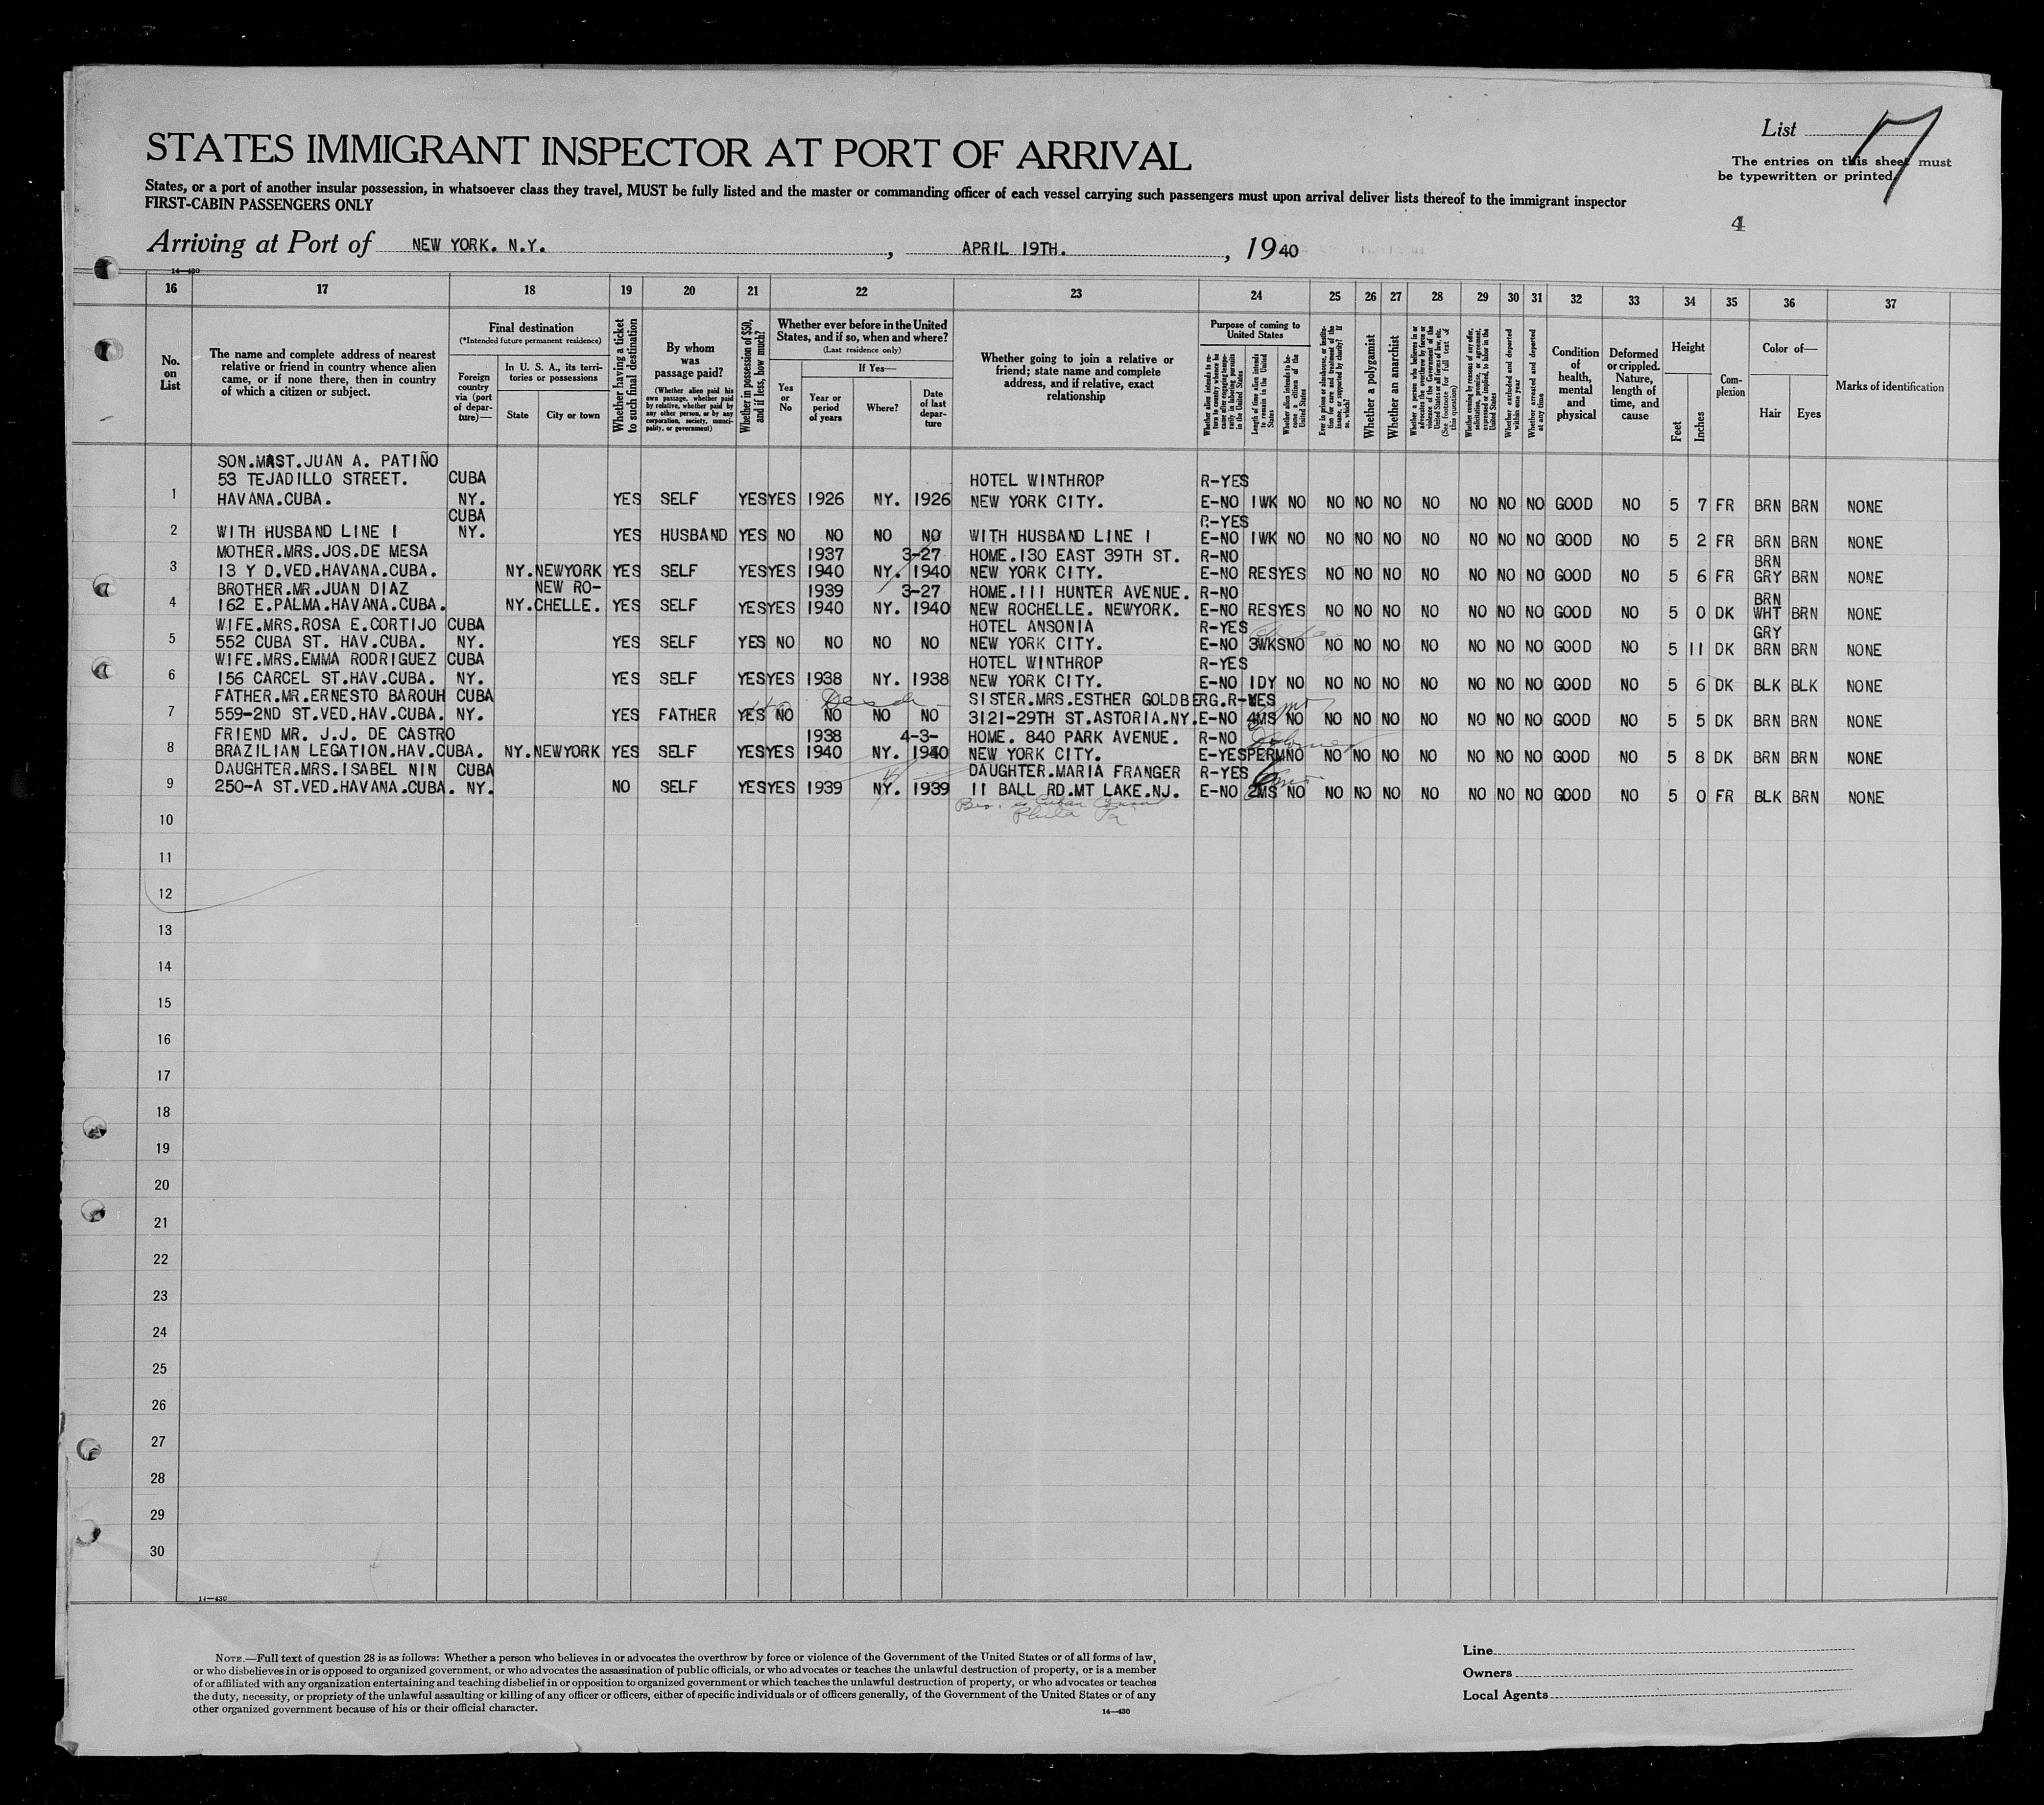 List 7
STATES IMMIGRANT INSPECTOR AT PORT OF ARRIVAL
The entries on this sheet must
be typewritten or printed
States, or a port of another insular possession, in whatsoever class they travel, MUST be fully listed and the master or commanding officer of each vessel carrying such passengers must upon arrival deliver lists thereof to the immigrant inspector
FIRST-CABIN PASSENGERS ONLY
4
Arriving at Port of NEW YORK. N.Y. , APRIL 19TH. , 1940
14—430
16 17 18 19 20 21 22 23 24 25 26 27 28 29 30 31 32 33 34 35 36 37
No. on List
The name and complete address of nearest relative or friend in country whence alien came, or if none there, then in country of which a citizen or subject.
Final destination
(*Intended future permanent residence)
Foreign country via (port of departure)—
In U. S. A., its territories or possessions
State
City or town
Whether having a ticket to such final destination
By whom was passage paid?
(Whether alien paid his own passage, whether paid by relative, whether paid by any other person, or by any corporation, society, municipality, or government)
Whether in possession of $50, and if less, how much?
Whether ever before in the United States, and if so, when and where?
(Last residence only)
Yes or No
If Yes—
Year or period of years
Where?
Date of last departure
Whether going to join a relative or friend; state name and complete address, and if relative, exact relationship
Purpose of coming to United States
Length of time alien intends to remain in the United States
Whether alien intends to become a citizen of the United States
Whether a polygamist
Whether an anarchist
Whether excluded and deported within one year
Whether arrested and deported at any time
Condition of health, mental and physical
Deformed or crippled. Nature, length of time, and cause
Height
Feet
Inches
Complexion
Color of—
Hair
Eyes
Marks of identification
SON.MAST.JUAN A. PATIÑO
53 TEJADILLO STREET. CUBA HOTEL WINTHROP R-YES
1 HAVANA.CUBA. NY. YES SELF YES YES 1926 NY. 1926 NEW YORK CITY. E-NO 1WK NO NO NO NO NO NO NO NO GOOD NO 5 7 FR BRN BRN NONE
CUBA R-YES
2 WITH HUSBAND LINE 1 NY. YES HUSBAND YES NO NO NO NO WITH HUSBAND LINE 1 E-NO 1WK NO NO NO NO NO NO NO NO GOOD NO 5 2 FR BRN BRN NONE
MOTHER.MRS.JOS.DE MESA 1937 3-27 HOME.130 EAST 39TH ST. R-NO BRN
3 13 Y D.VED.HAVANA.CUBA. NY. NEWYORK YES SELF YES YES 1940 NY. 1940 NEW YORK CITY. E-NO RES YES NO NO NO NO NO NO NO GOOD NO 5 6 FR GRY BRN NONE
BROTHER.MR.JUAN DIAZ NEW RO- 1939 3-27 HOME.111 HUNTER AVENUE. R-NO BRN
4 162 E.PALMA.HAVANA.CUBA. NY. CHELLE. YES SELF YES YES 1940 NY. 1940 NEW ROCHELLE. NEWYORK. E-NO RES YES NO NO NO NO NO NO NO GOOD NO 5 0 DK WHT BRN NONE
WIFE.MRS.ROSA E.CORTIJO CUBA HOTEL ANSONIA R-YES GRY
5 552 CUBA ST. HAV.CUBA. NY. YES SELF YES NO NO NO NO NEW YORK CITY. E-NO 3WKS NO NO NO NO NO NO NO NO GOOD NO 5 11 DK BRN BRN NONE
WIFE.MRS.EMMA RODRIGUEZ CUBA HOTEL WINTHROP R-YES
6 156 CARCEL ST.HAV.CUBA. NY. YES SELF YES YES 1938 NY. 1938 NEW YORK CITY. E-NO 1DY NO NO NO NO NO NO NO NO GOOD NO 5 6 DK BLK BLK NONE
FATHER.MR.ERNESTO BAROUH CUBA SISTER.MRS.ESTHER GOLDBERG. R-YES
7 559-2ND ST.VED.HAV.CUBA. NY. YES FATHER YES NO NO NO NO 3121-29TH ST.ASTORIA.NY. E-NO 4MS NO NO NO NO NO NO NO NO GOOD NO 5 5 DK BRN BRN NONE
FRIEND MR. J.J. DE CASTRO 1938 4-3- HOME. 840 PARK AVENUE. R-NO
8 BRAZILIAN LEGATION.HAV.CUBA. NY. NEWYORK YES SELF YES YES 1940 NY. 1940 NEW YORK CITY. E-YES PERM NO NO NO NO NO NO NO NO GOOD NO 5 8 DK BRN BRN NONE
DAUGHTER.MRS.ISABEL NIN CUBA DAUGHTER.MARIA FRANGER R-YES
9 250-A ST.VED.HAVANA.CUBA. NY. NO SELF YES YES 1939 NY. 1939 11 BALL RD.MT LAKE.NJ. E-NO 2MS NO NO NO NO NO NO NO NO GOOD NO 5 0 FR BLK BRN NONE
Phila Pa
10
11
12
13
14
15
16
17
18
19
20
21
22
23
24
25
26
27
28
29
30
14—430
NOTE.—Full text of question 28 is as follows: Whether a person who believes in or advocates the overthrow by force or violence of the Government of the United States or of all forms of law,
or who disbelieves in or is opposed to organized government, or who advocates the assassination of public officials, or who advocates or teaches the unlawful destruction of property, or is a member
of or affiliated with any organization entertaining and teaching disbelief in or opposition to organized government or which teaches the unlawful destruction of property, or who advocates or teaches
the duty, necessity, or propriety of the unlawful assaulting or killing of any officer or officers, either of specific individuals or of officers generally, of the Government of the United States or of any
other organized government because of his or their official character.
14—430
Line
Owners
Local Agents